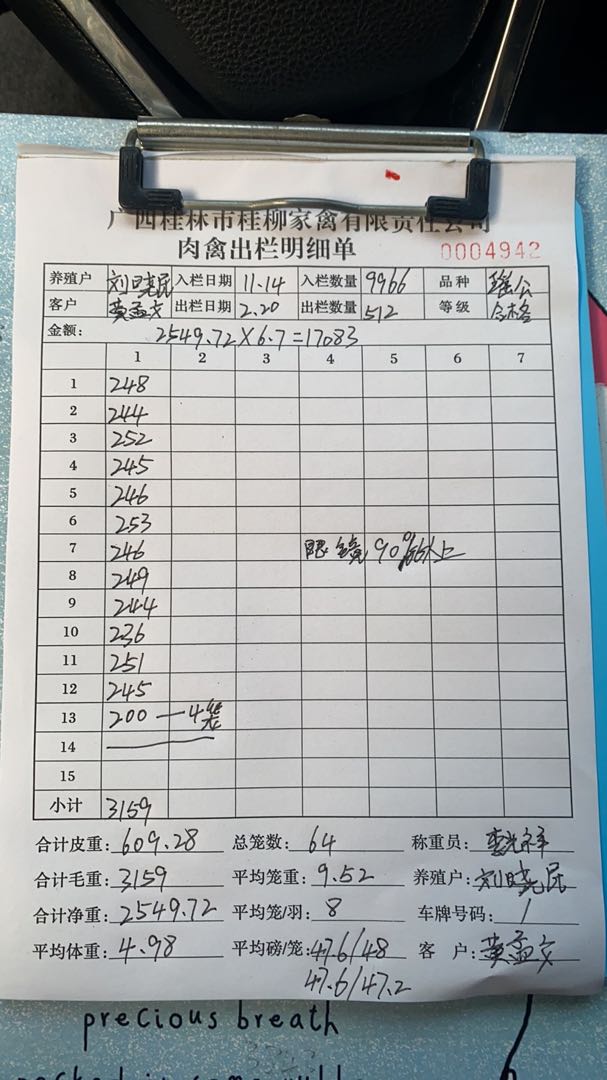 广西桂林市桂柳家禽有限责任公司
肉禽出栏明细单 0004942
养殖户 刘晓民 入栏日期 11.14 入栏数量 9966 品种
客户 黄孟文 出栏日期 2.20 出栏数量 512 等级 合格
金额: 2549.72×6.7=17083
1 2 3 4 5 6 7
1 248
2 244
3 252
4 245
5 246
6 253
7 246 眼镜90%以上
8 249
9 244
10 236
11 251
12 245
13 200 — 4笼
14
15
小计 3159
合计皮重: 609.28 总笼数: 64 称重员:
合计毛重: 3159 平均笼重: 9.52 养殖户: 刘晓民
合计净重: 2549.72 平均笼/羽: 8 车牌号码: /
平均体重: 4.98 平均磅/笼: 47.6/48 客户: 黄孟文
47.6/47.2
precious breath